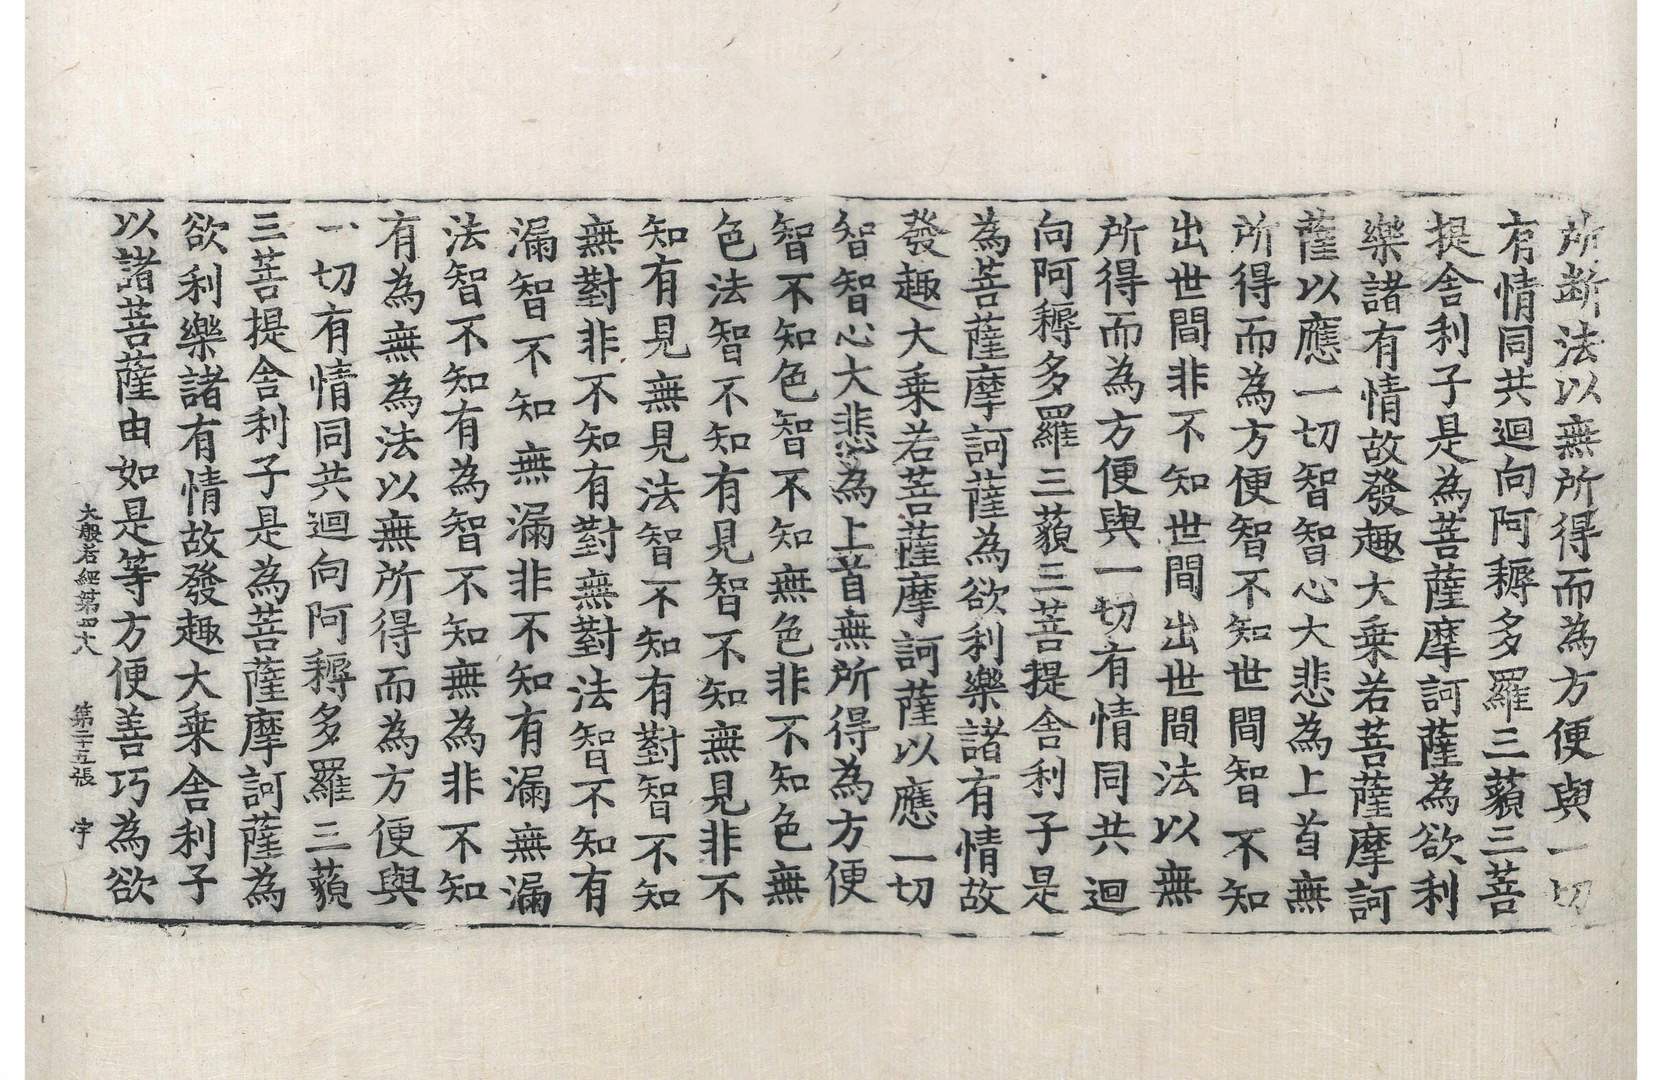 所断法以無所得而為方便與一切
有情同共迴向阿耨多羅三藐三菩
提舎利子是為菩薩摩訶薩為欲利
樂諸有情故發趣大乗若菩薩摩訶
薩以應一切智智心大悲為上首無
所得而為方便智不知世間智不知
出世間非不知世間出世間法以無
所得而為方便與一切有情同共迴
向阿耨多羅三藐三菩提舎利子是
為菩薩摩訶薩為欲利樂諸有情故
發趣大乗若菩薩摩訶薩以應一切
智智心大悲為上首無所得為方便
智不知色智不知無色非不知色無
色法智不知有見智不知無見非不
知有見無見法智不知有對智不知
無對非不知有對無對法智不知有
漏智不知無漏非不知有漏無漏
法智不知有為智不知無為非不知
有為無為法以無所得而為方便與
一切有情同共迴向阿耨多羅三藐
三菩提舎利子是為菩薩摩訶薩為
欲利樂諸有情故發趣大乗舎利子
以諸菩薩由如是等方便善巧為欲
大般若經第四十八 第二十五張 宇